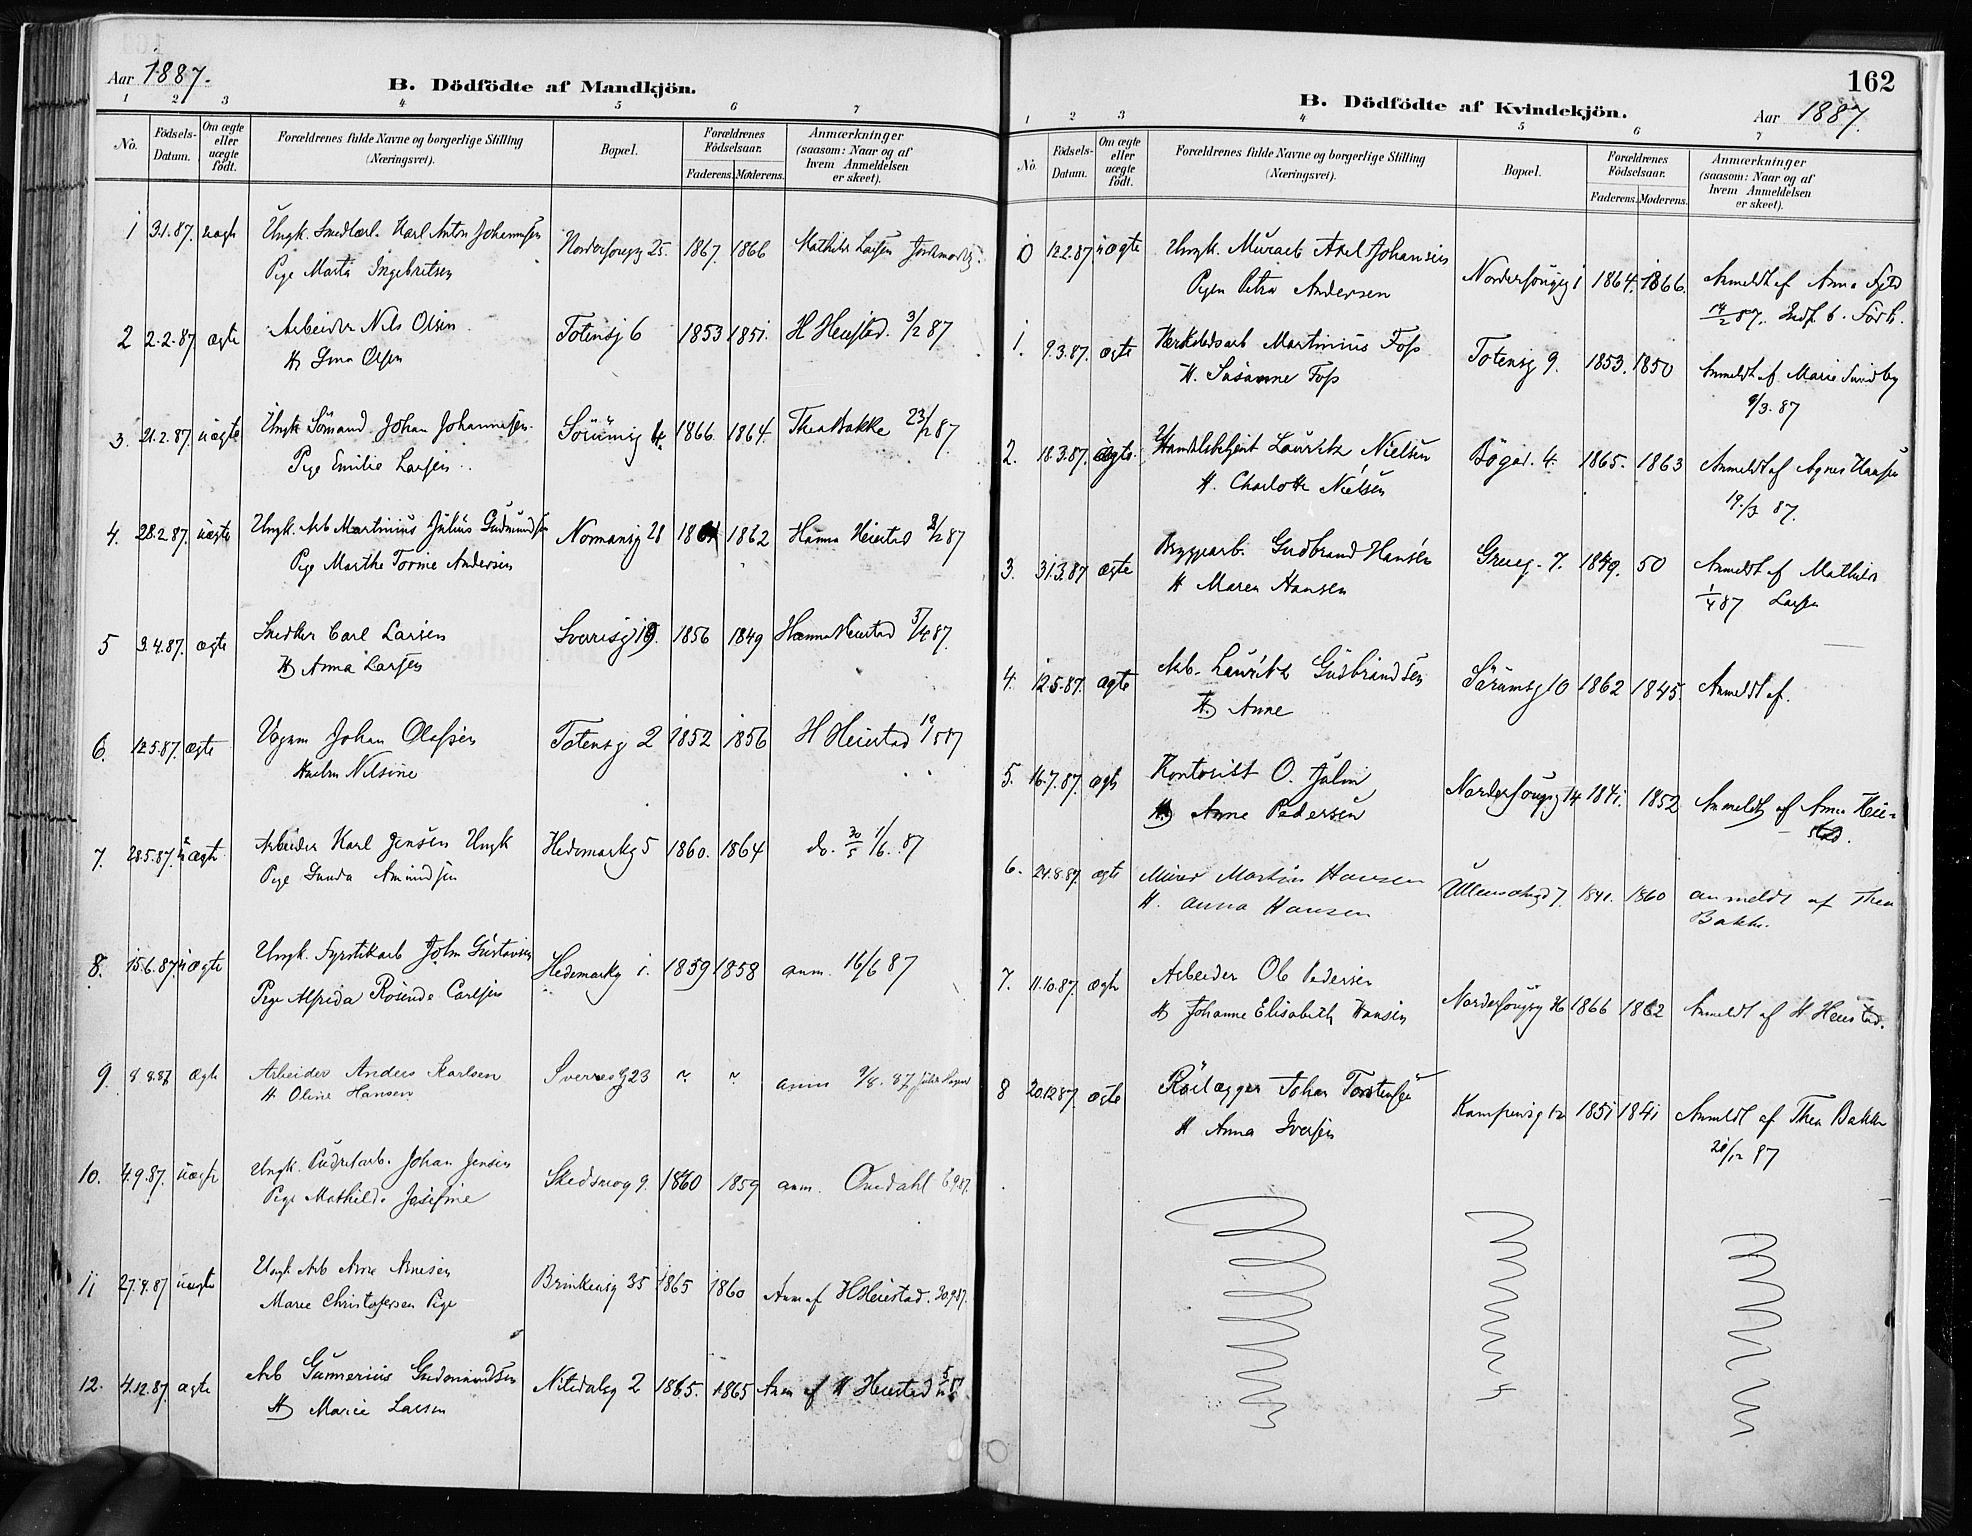 Aar 1887.
B. Dödfödte af Mandkjön.
1 2 3 4 5 6 7
No. Födsels-Datum. Om ægte eller uægte födt. Forældrenes fulde Navne og borgerlige Stilling (Næringsvei). Bopæl. Forældrenes Födselsaar. Faderens. Moderens. Anmærkninger (saasom: Naar og af hvem Anmeldelsen er skeet).
1 3.1.87. uægte Ungk. Karl Anton Johannesen 25. 1867. 1866 Mathilde Larsen
Pige Marta Ingebretsen
2 2.2.87 ægte Arbeider Nils Olsen Totensg 6 1853 1851. H Heiestad. 3/2 87
H Olsen
3. 21.2.87. uægte Ungk Sömand Johan Johannesen Sörumsg 1866. 1864. Thea Bakke 23/2 87.
Pige Emilie Larsen
4. 28.2.87. uægte Ungk. Arb Martinius Julius Gudmundsen Normansg 28 1862 Hanna Heiestad 87
Pige Marthe Torine Andersen
5 3.4.87. ægte Snedker Carl Larsen Sverresg 19. 1856 1849 Hanna Heiestad 5/4 87.
H Anna Larsen
6. 12.5.87. ægte Vognm Johan Olafsen Totensg 2 1852 1856 H Heiestad
Nilsine
7. 28.5.87. uægte Arbeider Karl Jensen Ungk Hedemarkg 5 1860. 1864 do. 30/5 1/6. 87
Pige Gunda Amundsen
8. 15.6.87. uægte Ungk. Fyrstikarb John Gustavsen Hedemarkg 1. 1859 1858 anm. 16/6 87
Pige Alfrida Rosende Carlsen
9. 8 8.87 ægte Arbeider Anders Karlsen Sverresg 23 ~ ~ anm 9/8. 87
H Oline Hansen
10. 4.9.87. uægte Ungk. Johan Jensen Skedsmog 9. 1860 1859 anm. 6.9.87.
Pige Mathilde Josefine
11 27.9.87 uægte Ungk Arb Arne Arnesen Brinkensg 35 1865 1860 Anm af H Heiestad. 30.9.87.
Marie Christofersen Pige
12. 4.12.87. ægte Arb Gunnerius Gudmundsen Nitedalsg 2 1865. 1865 Anm af H Heiestad
H Marie Larsen
162
B. Dödfödte af Kvindekjön.
Aar 1887.
1 2 3 4 5 6 7
No. Födsels-Datum. Om ægte eller uægte födt. Forældrenes fulde Navne og borgerlige Stilling (Næringsvei). Bopæl. Forældrenes Födselsaar. Faderens. Moderens. Anmærkninger (saasom: Naar og af hvem Anmeldelsen er skeet).
0 12.2.87 uægte Ungk. Murarb Axel Johansen 1 1864. 1866. Anmeldt af Anna
Pigen Petra Andersen 14/2 87.
1. 9.3.87. ægte Martinius Foss Totensg 9. 1853. 1850 Anmeldt af Marie Sundby
H. Susanne Foss 9/3. 87
2. 18.3.87. ægte. Handelsbetjent Lauritz Nielsen Bögad. 4. 1865. 1863 Anmeldt af Agnes Hansen
H. Charlotte Nielsen 19./3 87.
3. 31.3.87 ægte Bryggearb. Gudbrand Hansen Grueg. 7. 1849. 50 Anmeldt af Mathilde
H Maren Hansen 1/4 87 Larsen
4. 12.5.87. ægte Arb. Lauritz Gudbrandsen Sörumsg 10 1862 1845 Anmeldt af.
H. Anne
5. 16.7.87. ægte Kontorist O. Julin 14 1841. 1852 Anmeldt af Anna Heie-
H Anne Pedersen stad.
6. 24.8.87. ægte Murer Martin Hansen 7. 1841. 1860 anmeldt af Thea
H. Anna Hansen Bakke.
7. 11.10.87. ægte Arbeider Ole Pedersen 1866 1862 Anmeldt af H Heiestad.
H Johanne Elisabeth Hansen
8 20.12.87. ægte Rörlægger Johan Torstensen Kampensg 12 1851 1841 Anmeldt af Thea Bakke
H Anna Iversen 20/12 87